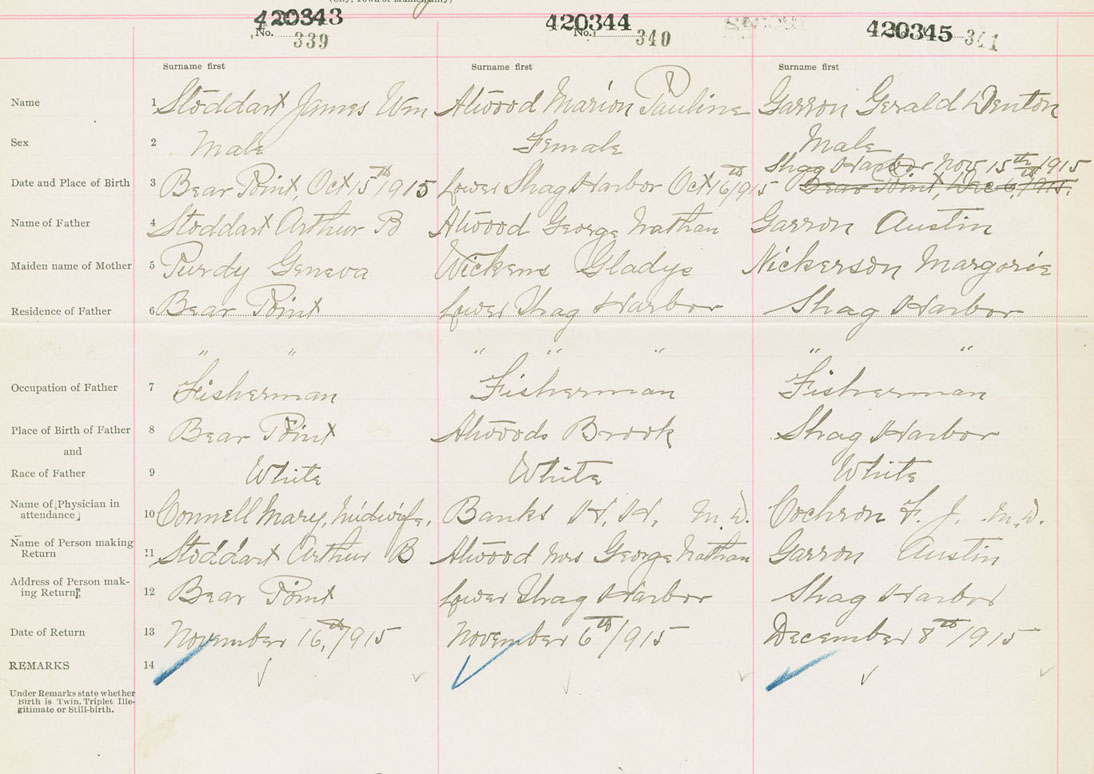 420343 420344 420345
No. 339 No. 340 341
Surname first Surname first Surname first
Name 1 Stoddart James Wm Atwood Marion Pauline Garron Gerald Denton
Sex 2 Male Female Male
Shag Harbor Nov 15th 1915
Date and Place of Birth 3 Bear Point, Oct 15th 1915 Lower Shag Harbor Oct 16th 1915 Bear Point, Dec 6, 1915.
Name of Father 4 Stoddart Arthur B Atwood George Nathan Garron Austin
Maiden name of Mother 5 Purdy Geneva Wickens Gladys Nickerson Margorie
Residence of Father 6 Bear Point Lower Shag Harbor Shag Harbor
" " " " " " "
Occupation of Father 7 Fisherman Fisherman Fisherman
Place of Birth of Father 8 Bear Point Atwoods Brook Shag Harbor
and
Race of Father 9 White White White
Name of Physician in
attendance 10 Connell Mary, Midwife. Banks H. H. M.D. Cochron F. J. M.D.
Name of Person making
Return 11 Stoddart Arthur B Atwood Mrs George Nathan Garron Austin
Address of Person mak-
ing Return 12 Bear Point Lower Shag Harbor Shag Harbor
Date of Return 13 November 16th/1915 November 6th/1915 December 8th/1915
REMARKS 14
Under Remarks state whether
Birth is Twin, Triplet Ille-
gitimate or Still-birth.